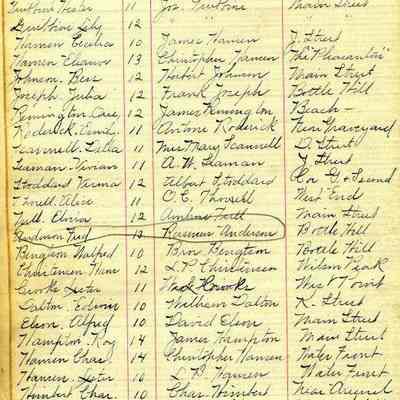 Hester 11 Jos. Main Street
Lily 12
Hansen Cecelia 10 James Hansen J. Street
Hansen Eleanor 13 Christopher Hansen "The Pleasanton"
Johnson. Bess 12 Herbert Johnson Main Street
Joseph. Julia 12 Frank Joseph Bottle Hill
Remington Cora, 12 James Remington Beach -
Roderick. 11 Antone Roderick Near Graveyard
Scannell. Lelia 11 Mrs Mary Scannell D. Street
Seaman. Vivian 11 A. W. Seaman J Street
Stoddard Verma 12 Albert Stoddard Cor & Second
Alice 11 O. C. West End
Tull. Elvira 12 Ambrose Main Street
Fred 12 Rasmus Anderson Bottle Hill
Bengtson Walfred 10 Bros. Bengtson Bottle Hill
Christensen 12 L. P. Christensen Wilson Peak
Crooks Lester 11 Crooks West Tomit
Dalton. Edwin 10 William Dalton K. Street
Elson. Alfred 10 David Elson Main Street
Hampton, Roy 14 James Hampton Main Street
Hansen Chas. 14 Christopher Hansen Water Front
Hansen. Lester 16 L. D. Hansen Water Front
Himbert Chas. 10 Chas. Himbert Near Arsenal